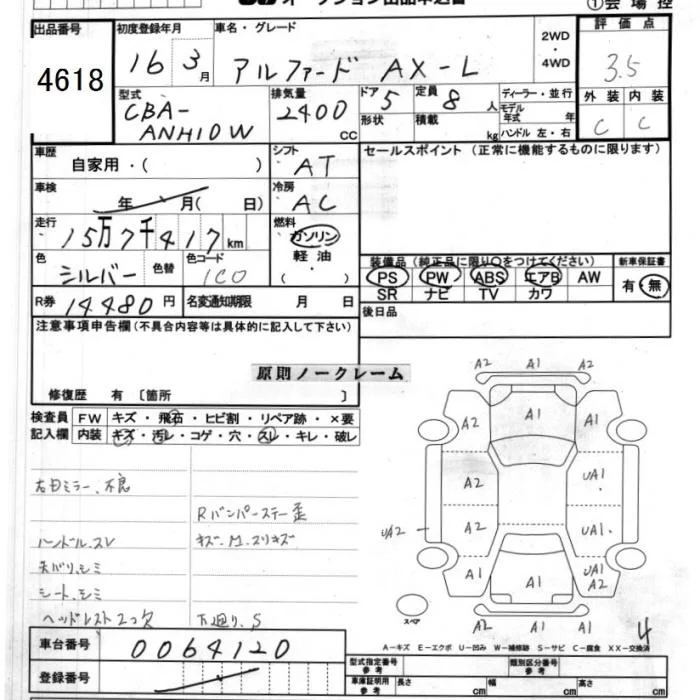 オークション出品申込書
①会場控
出品番号
4618
初度登録年月
16年3月
車名・グレード
アルファード AX-L
2WD・4WD
評価点
3.5
型式
CBA-
ANH10W
排気量
2400cc
ドア 5
形状
定員 8人
積載 kg
ディーラー・並行
モデル年式 年
ハンドル 左・右
外装 内装
C C
車歴
自家用・( )
シフト
AT
セールスポイント (正常に機能するものに限ります)
車検
年 月( 日)
冷房
AC
走行
15万7千417km
燃料
ガソリン
軽油
( ・ )
色
シルバー
色替
色コード
1C0
装備品 (純正品に限り○をつけてください) 新車保証書
PS PW ABS エアB AW
SR ナビ TV カワ
有・無
R券 14480円
名変通知期限 月 日
後日品
注意事項申告欄(不具合内容等は具体的に記入して下さい)
原則ノークレーム
修復歴 有 〔箇所 〕
検査員記入欄
FW キズ・飛石・ヒビ割・リペア跡・×要
内装 キズ・汚レ・コゲ・穴・スレ・キレ・破レ
右日ミラー、不良
Rバンパーステー歪
ハンドル、スレ
キズ、M、スリキズ
天バリ、シミ
シート、シミ
ヘッドレスト2つ欠
下廻り、S
A2 A1 A2
A2 A1 A1
A2 UA1
UA2 A2 UA1
A1 A1 UA1 A2
スペア
A2 A1 A1
4
A-キズ E-エクボ U-凹み W-補修跡 S-サビ C-腐食 XX-交換済
車台番号
0064120
登録番号
型式指定番号 参考
類別区分番号 参考
車庫証明用 参考
長さ cm
幅 cm
高さ cm